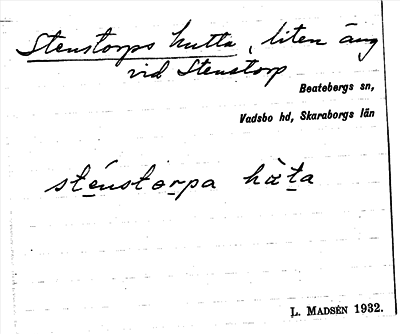 Stenstorps hutta, liten äng
vid Stenstorp
Beatebergs sn,
Vadsbo hd, Skaraborgs län
sténstorpa hàta
L. MADSÉN 1932.